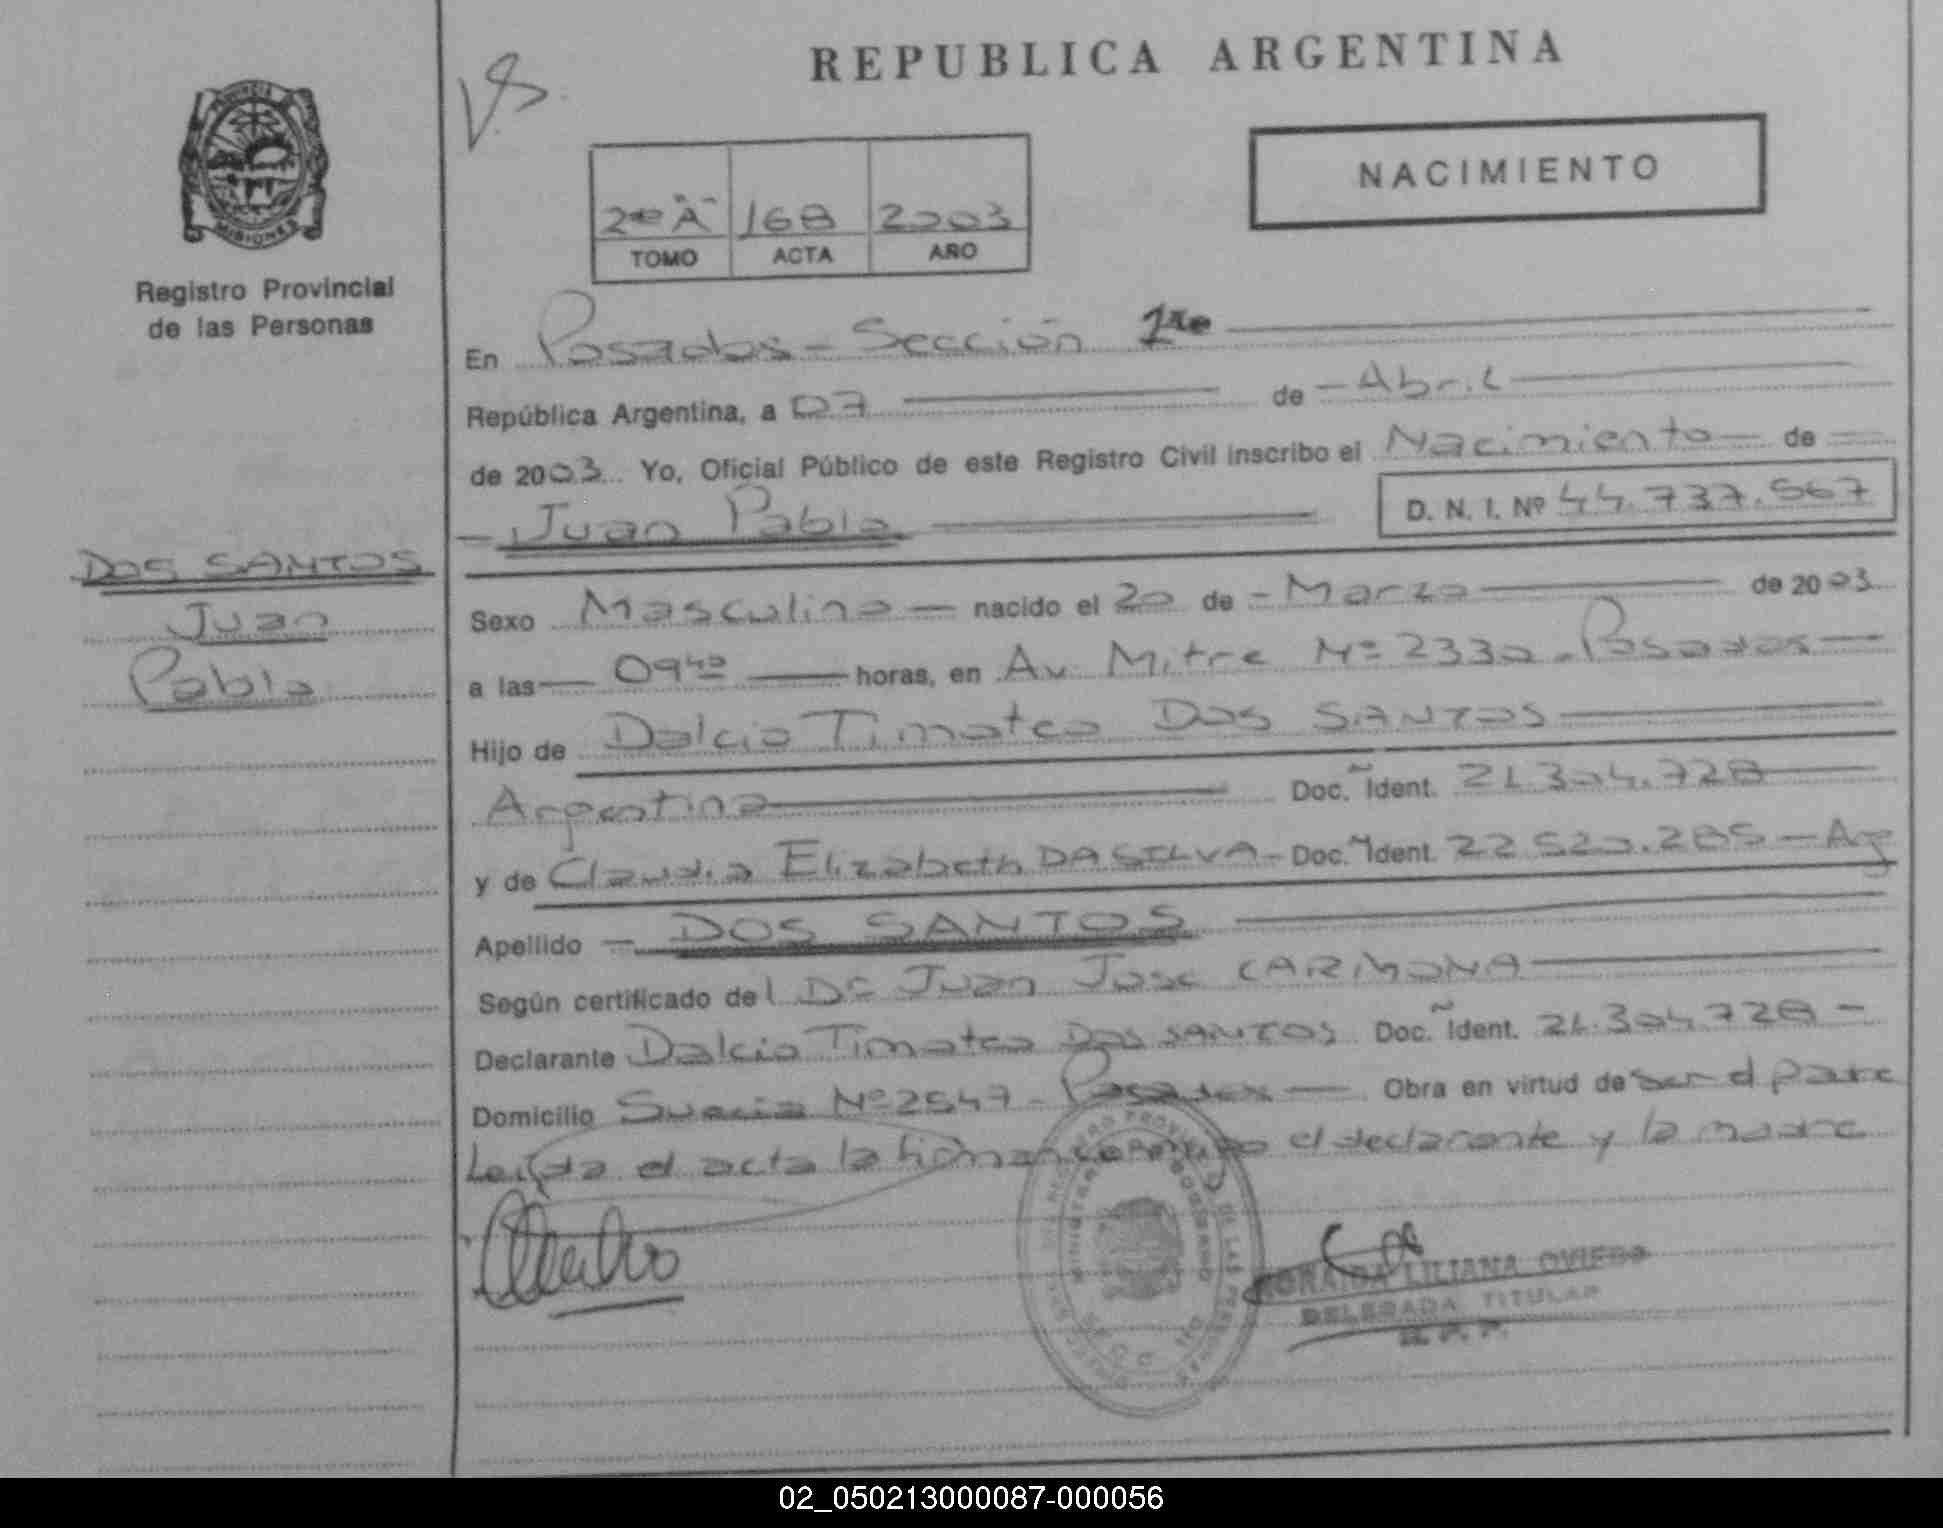 REPUBLICA ARGENTINA
NACIMIENTO
2º "A" 168 2003
TOMO ACTA AÑO
PROVINCIA
MISIONES
Registro Provincial
de las Personas
En Posadas - Sección 1ra
República Argentina, a 07 de Abril
de 2003 Yo, Oficial Público de este Registro Civil inscribo el Nacimiento de
Juan Pablo
D. N. I. Nº 44.737.567
DOS SANTOS
Juan
Pablo
Sexo Masculino nacido el 20 de Marzo de 2003
a las 09 40 horas, en Av. Mitre Nº 2330 - Posadas
Hijo de Dalcio Timoteo DOS SANTOS
Argentino Doc. Ident. 21.304.728
y de Claudia Elizabeth DA SILVA - Doc. Ident. 22.520.285 - Arg
Apellido DOS SANTOS
Según certificado del Dr Juan José CARMONA
Declarante Dalcio Timoteo DOS SANTOS Doc. Ident. 21.304.728
Domicilio Suecia Nº 2547 - Posadas Obra en virtud de ser el padre
Leída el acta la firman conmigo el declarante y la madre
LILIANA OVIEDO
DELEGADA TITULAR
R. P. P.
02_050213000087-000056